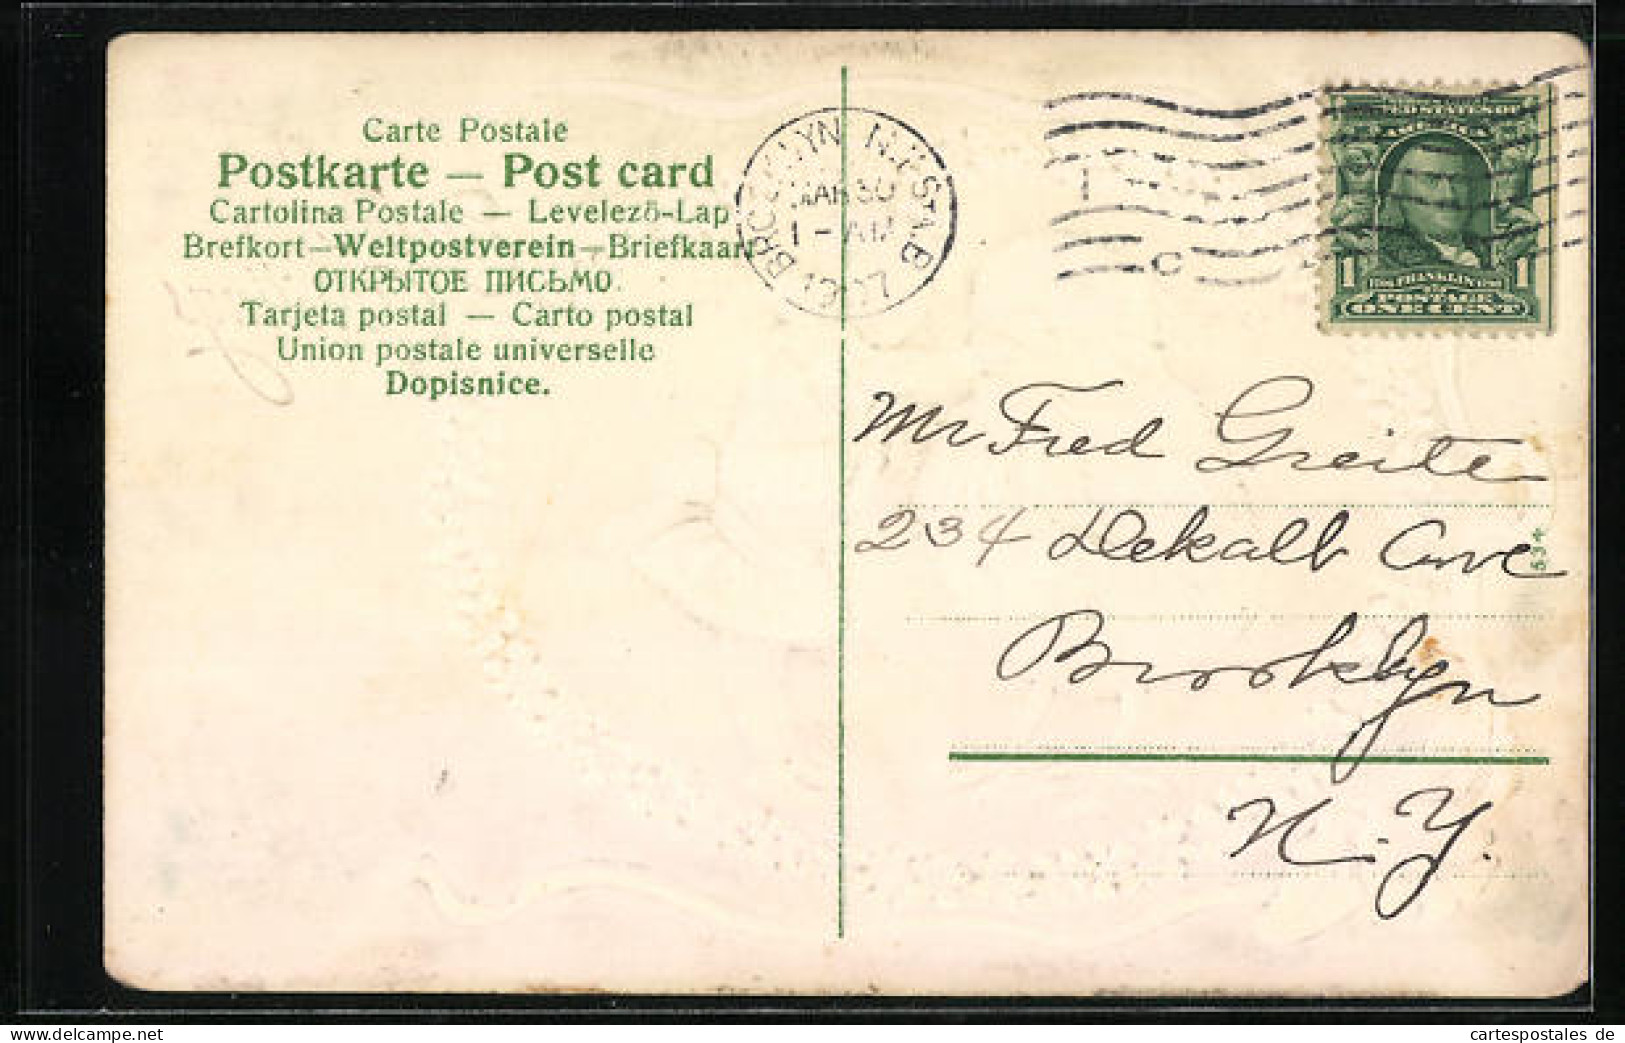 Carte Postale
Postkarte — Post card
Cartolina Postale — Levelezō-Lap
Brefkort — Weltpostverein — Briefkaart
ОТКРЫТОЕ ПИСЬМО.
Tarjeta postal — Carto postal
Union postale universelle
Dopisnice.
BROOKLYN N.Y. STA. B
MAR 30
1 - AM
1907
C
UNITED STATES OF
AMERICA
1 FRANKLIN 1
POSTAGE
ONE CENT
Mr Fred Greite
234 Dekalb Ave
534
Brooklyn
N.Y.
cartespostales de